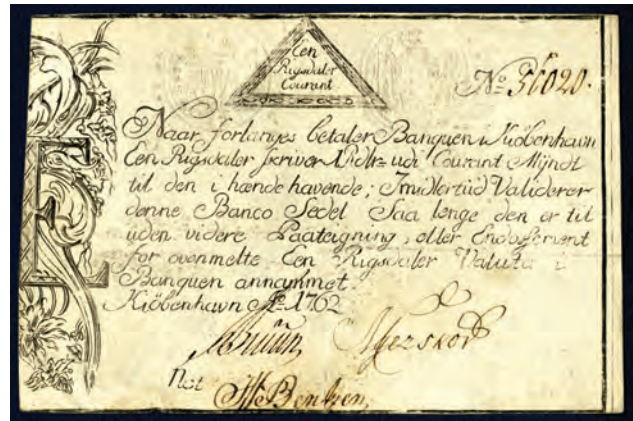 Een
Rigsdaler
Courant
No 51020.
Naar forlanges betaler Banquen i Kiöbenhavn
Een Rigsdaler skriver 1 Rdlr udi Courant Myndt
til den i hænde havende; Imidlertiid Validerer
denne Banco Sedel Saa lenge den er til
uden videre Paateigning, eller Endossement
for ovenmelte Een Rigsdaler Valuta i
Banquen annammet.
Kiöbenhavn Ao 1762
Not